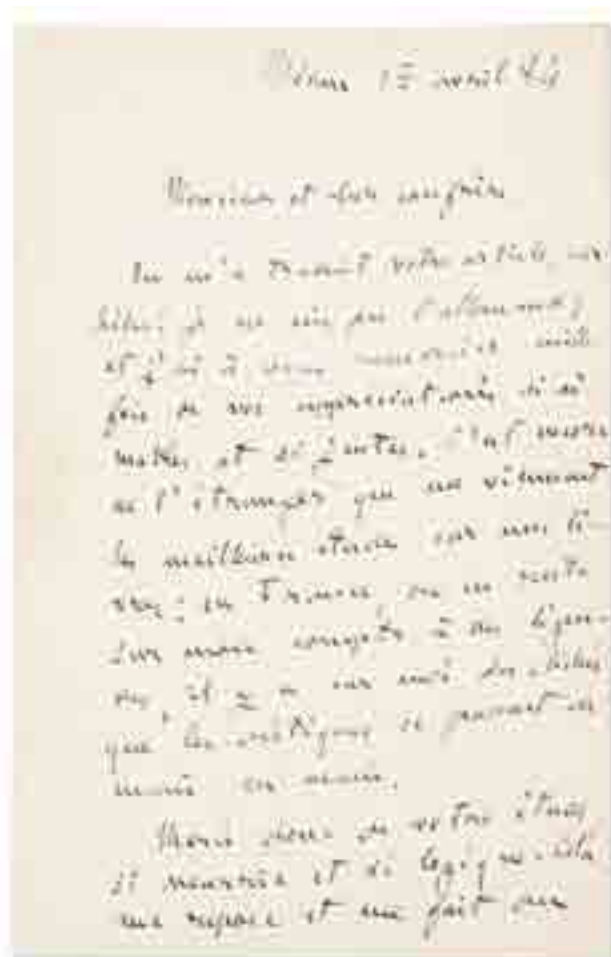 1er avril 84
Monsieur et cher confrère
On m'a traduit votre article, car
hélas! je ne sais pas l'allemand,
et j'ai à vous remercier mille
fois de vos appréciations si ai-
mables et si justes. C'est encore
de l'étranger que me viennent
les meilleures études sur mes li-
vres: en France on en reste
sur mon compte à des légen-
des, il y a sur moi des
que les critiques se passent de
main en main.
Merci donc de votre étude
si nourrie et si logique. Cela
me repose et me fait